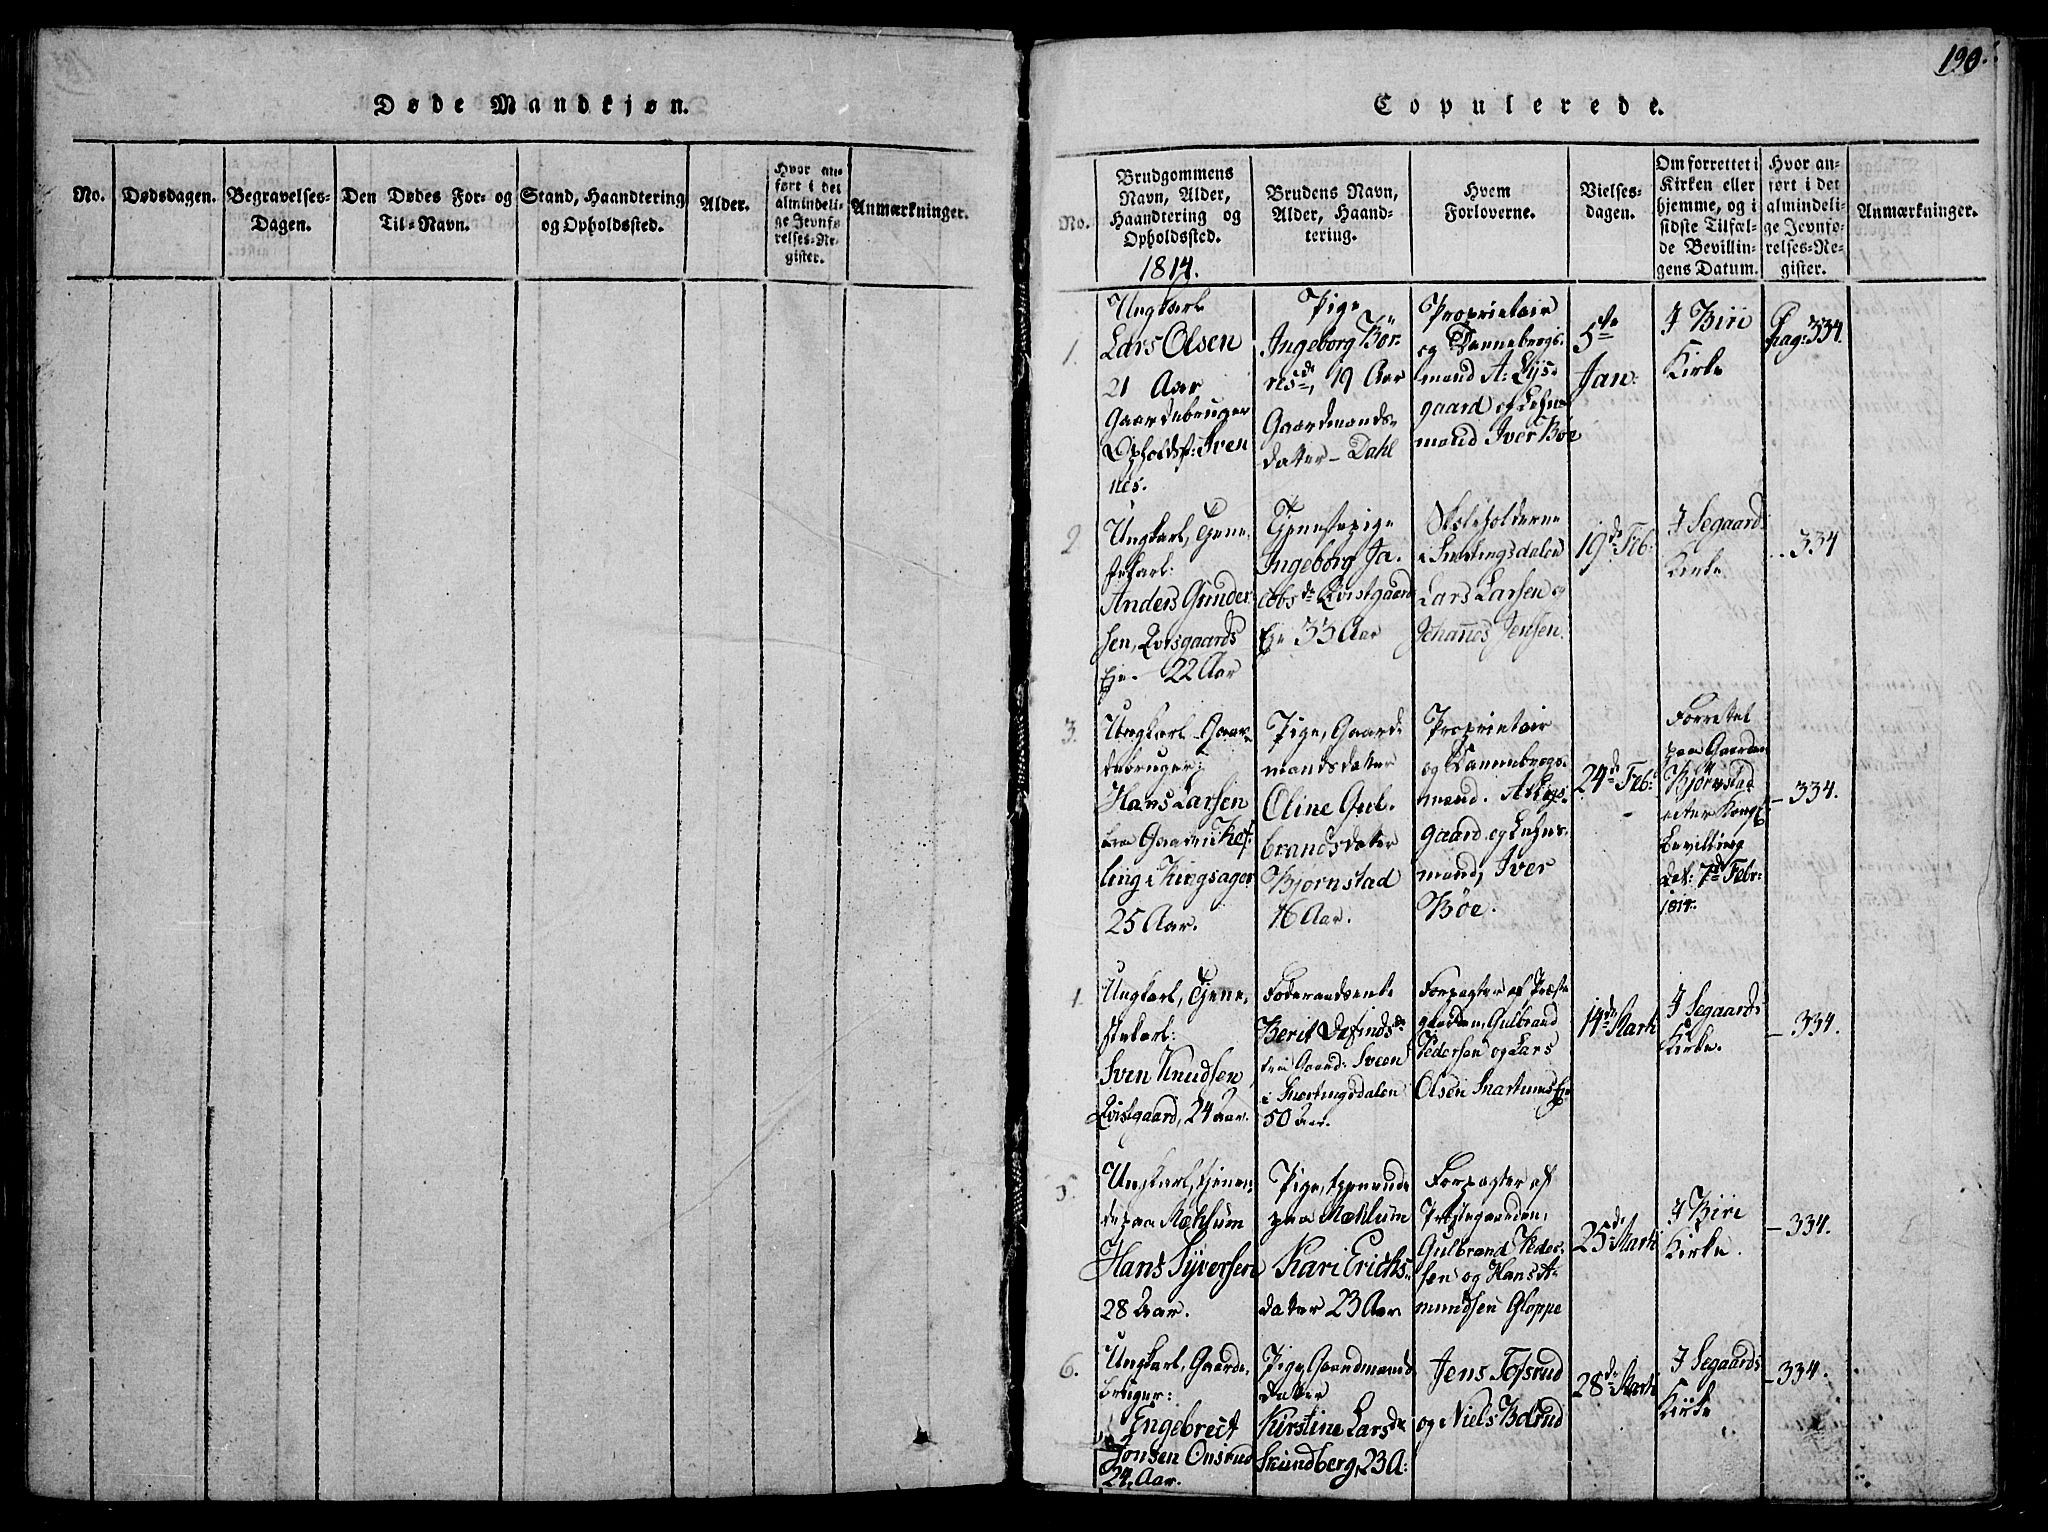 190.
Døde Mandkjøn.
No.
Dødsdagen.
Begravelses-
Dagen.
Den Dødes For- og
Til-Navn.
Stand, Haandtering
og Opholdssted.
Alder.
Hvor an-
ført i det
almindeli-
ge Jevnfø-
relses-Re-
gister.
Anmærkninger.
Copulerede.
No.
Brudgommens
Navn, Alder,
Haandtering og
Opholdssted.
1814.
Brudens Navn,
Alder, Haand-
tering.
Hvem
Forloverne.
Vielses-
dagen.
Om forrettet i
Kirken eller
hjemme, og i
sidste Tilfæl-
de Bevillin-
gens Datum.
Hvor an-
ført i det
almindeli-
ge Jevnfø-
relses-Re-
gister.
Anmærkninger.
1.
Ungkarl
Lars Olsen
21 Aar
Gaardebruger
Opholdst: Sven
nes.
Pige
Ingeborg Bör-
resd, 19 Aar
Gaardmands-
datter - Dahl
Proprietair
og Dannebrogs-
mand A: Lys-
gaard og Lehns-
mand Iver Böe
5te
Jan:
I Biri
Kirke
Pag: 334.
2.
Ungkarl, Tjene-
stekarl:
Anders Gunder
sen, Qvisgaards
Eje. 22 Aar
Tjenestepige
Ingeborg Ja-
cobsd Qvistgaard
Eje 33 Aar
Skoleholderne
i Snertingsdalen
Lars Larsen og
Johannes Jensen.
19de Feb:
I Segaards
Kirke
.. 334
3.
Ungkarl Gaar-
debruger:
Hans Larsen
fra Gaarden Kef-
ling i Ringsager
25 Aar.
Pige, Gaard-
mandsdatter
Oline Gul-
brandsdatter
Bjørnstad
16 Aar.
Proprietair
og Dannebrogs-
mand. A Lys-
gaard og Lehns-
mand, Iver
Böe.
24de Feb:
Forrettet
paa Gaarden
Bjørnstad
efter Kongl
Bevilling
dat: 7de Febr:
1814.
- 334.
4.
Ungkarl, Tjene-
stekarl:
Sven Knudsen
Qvistgaard, 24 Aar.
Foderaadsenke
Berit Dafinds
fra Gaard: Sveen
i Snertingsdalen
50 Aar.
Forpagter af Præste
gaarden, Gulbrand
Pedersen og Lars
Olsen Snartums Eje
14de Marti
I Segaards
Kirke.
- 334.
5.
Ungkarl, tjenen-
de paa Mæhlum
Hans Syversen
28 Aar.
Pige, tjenende
paa Mæhlum
Kari Erichs-
datter 23 Aar
Forpagter af
Præstegaarden,
Gulbrand Peder-
sen og Hans A-
mundsen Gloppe
25de Marti
I Biri
Kirke.
- 334.
6.
Ungkarl, Gaarde-
bruger:
Engebrect
Jonsen Onsrud
24 Aar.
Pige, Gaardmands
datter
Kirstine Larsd
Skundberg, 23 A:
Jens Tofsrud
og Niels Bolrud
28de Marti
I Segaards
Kirke
- 334.